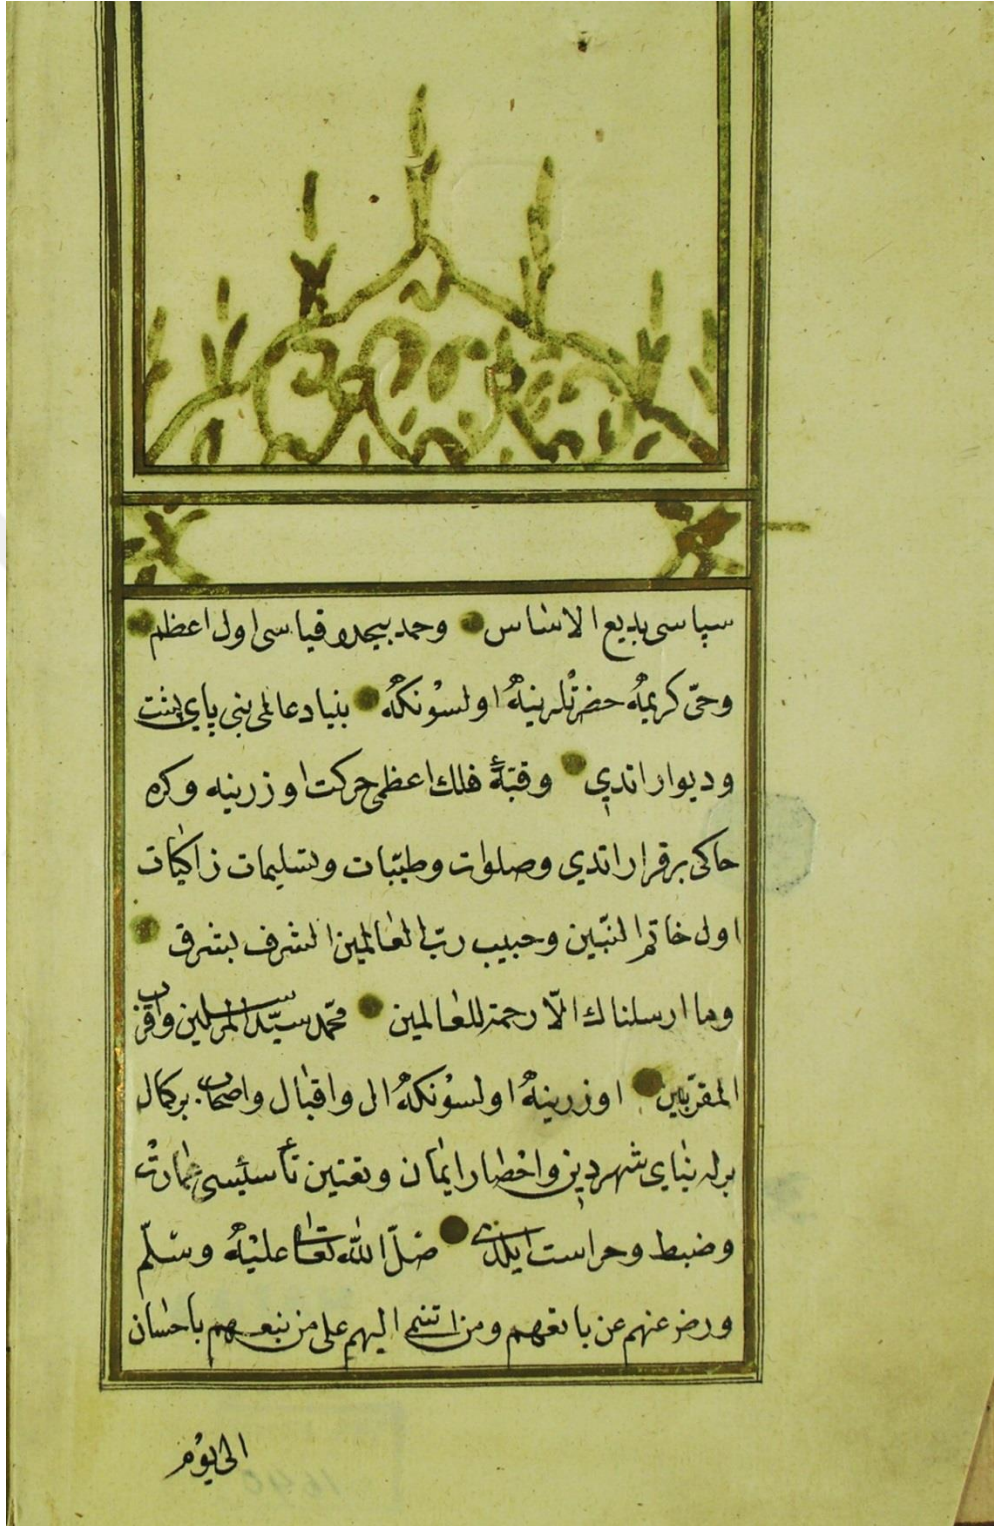 سپاسی بدیع الاساس وحمد بیحد وقیاسی اول اعظم
وحیّ کریمه حضرتلرینه اولسونکه بنیاد عالمی بنی پای پشت
ودیوار اتدی وقبّۀ فلك اعظمی حرکت اوزرینه وکره
خاکی برقرار اتدی وصلوات وطیّبات وتسلیمات زاکیات
اول خاتم النبّین وحبیب ربّ العالمین الشرف بشرف
وما ارسلناك الّا رحمة للعالمین محمّد سیّد المرسلین واقرب
المقرّبین اوزرینه اولسونکه ال واقبال واصحاب برکمال
برله بنای شهر دین واخطار ایمان وتعیین تأسیسی عمارت
وضبط وحراست ایلدی صلّ الله تعالی علیه وسلّم
ورضی عنهم عن بایعهم ومن انتمی الیهم علی من تبعهم باحسان
الی یوم